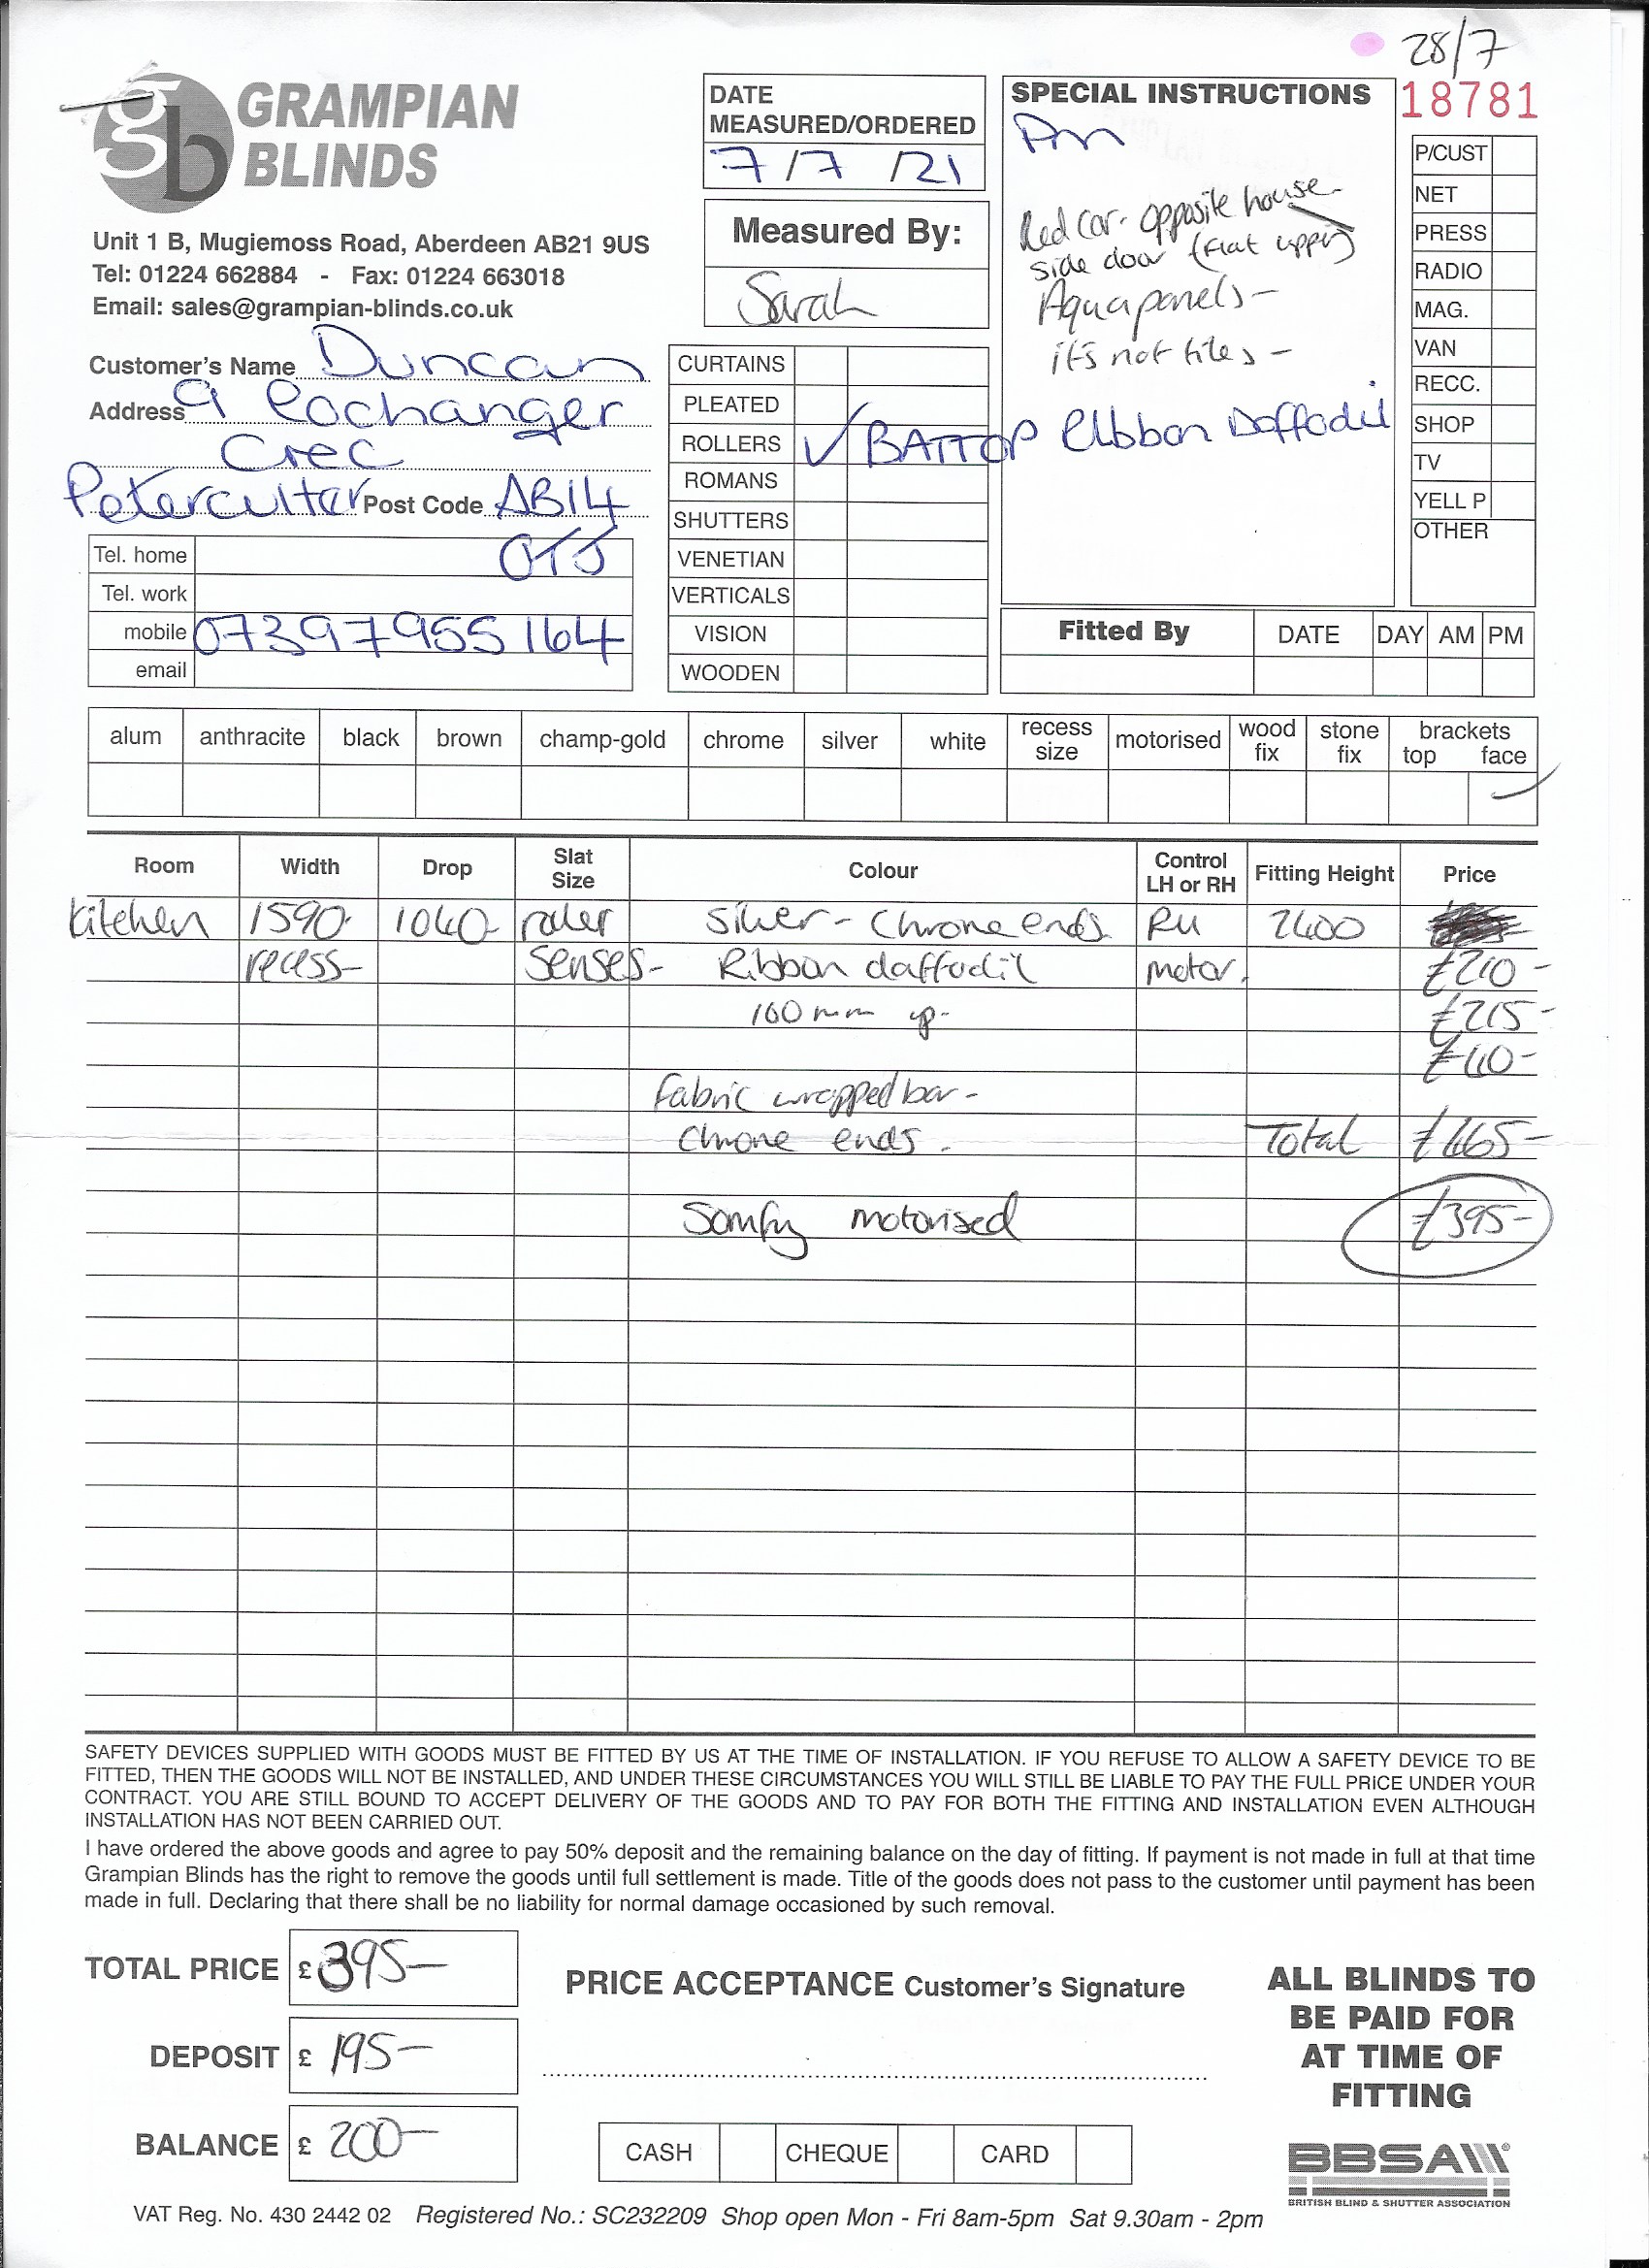 28/7
18781
gb GRAMPIAN
BLINDS
Unit 1 B, Mugiemoss Road, Aberdeen AB21 9US
Tel: 01224 662884 - Fax: 01224 663018
Email: sales@grampian-blinds.co.uk
Customer's Name Duncan
Address 9 Rochanger
Crec
Peterculter Post Code AB14
0TJ
Tel. home
Tel. work
mobile 07397955164
email
DATE
MEASURED/ORDERED
7/7/21
Measured By:
Sarah
CURTAINS
PLEATED
ROLLERS ✓ BATTOP Ribbon Daffodil
ROMANS
SHUTTERS
VENETIAN
VERTICALS
VISION
WOODEN
SPECIAL INSTRUCTIONS
Pm
Red car - opposite house
side door (Fiat uppy)
Aquapanels -
it's not tiles -
P/CUST
NET
PRESS
RADIO
MAG.
VAN
RECC.
SHOP
TV
YELL P
OTHER
Fitted By DATE DAY AM PM
alum anthracite black brown champ-gold chrome silver white recess size motorised wood fix stone fix brackets top face ✓
Room Width Drop Slat Size Colour Control LH or RH Fitting Height Price
Kitchen 1590 1040 roller Silver - Chrome ends RH 2400
recess - Senses - Ribbon daffodil motor. £210 -
100mm up - £215 -
£40 -
Fabric wrapped bar -
Chrome ends. Total £465 -
Somfy motorised £395 -
SAFETY DEVICES SUPPLIED WITH GOODS MUST BE FITTED BY US AT THE TIME OF INSTALLATION. IF YOU REFUSE TO ALLOW A SAFETY DEVICE TO BE
FITTED, THEN THE GOODS WILL NOT BE INSTALLED, AND UNDER THESE CIRCUMSTANCES YOU WILL STILL BE LIABLE TO PAY THE FULL PRICE UNDER YOUR
CONTRACT. YOU ARE STILL BOUND TO ACCEPT DELIVERY OF THE GOODS AND TO PAY FOR BOTH THE FITTING AND INSTALLATION EVEN ALTHOUGH
INSTALLATION HAS NOT BEEN CARRIED OUT.
I have ordered the above goods and agree to pay 50% deposit and the remaining balance on the day of fitting. If payment is not made in full at that time
Grampian Blinds has the right to remove the goods until full settlement is made. Title of the goods does not pass to the customer until payment has been
made in full. Declaring that there shall be no liability for normal damage occasioned by such removal.
TOTAL PRICE £ 395 -
DEPOSIT £ 195 -
BALANCE £ 200 -
PRICE ACCEPTANCE Customer's Signature
CASH CHEQUE CARD
ALL BLINDS TO
BE PAID FOR
AT TIME OF
FITTING
BBSA
BRITISH BLIND & SHUTTER ASSOCIATION
VAT Reg. No. 430 2442 02 Registered No.: SC232209 Shop open Mon - Fri 8am-5pm Sat 9.30am - 2pm